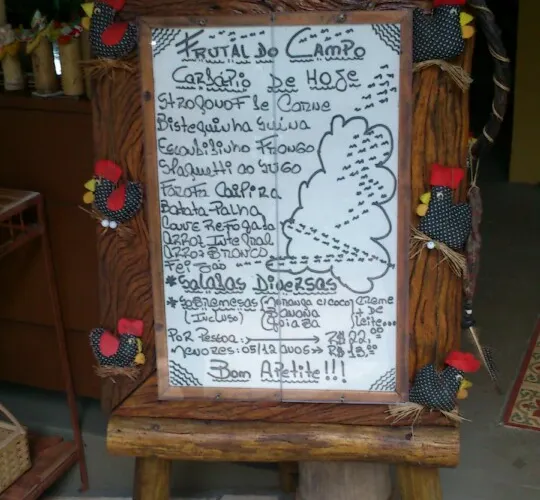 Frutal do Campo
Cardápio de Hoje
Strogonof de Carne
Bistequinha Suína
Escondidinho Frango
Spaguetti ao Sugo
Farofa Caipira
Batata-Palha
Couve Refogada
Arroz Integral
Arroz Branco
Feijão
*Saladas Diversas
*Sobremesas (Moranga c/coco) Creme
(Incluso) Banana + de
Goiaba Leite...
Por Pessoa: R$ 22,00
Menores: 05/12 anos R$ 18,00
Bom Apetite!!!